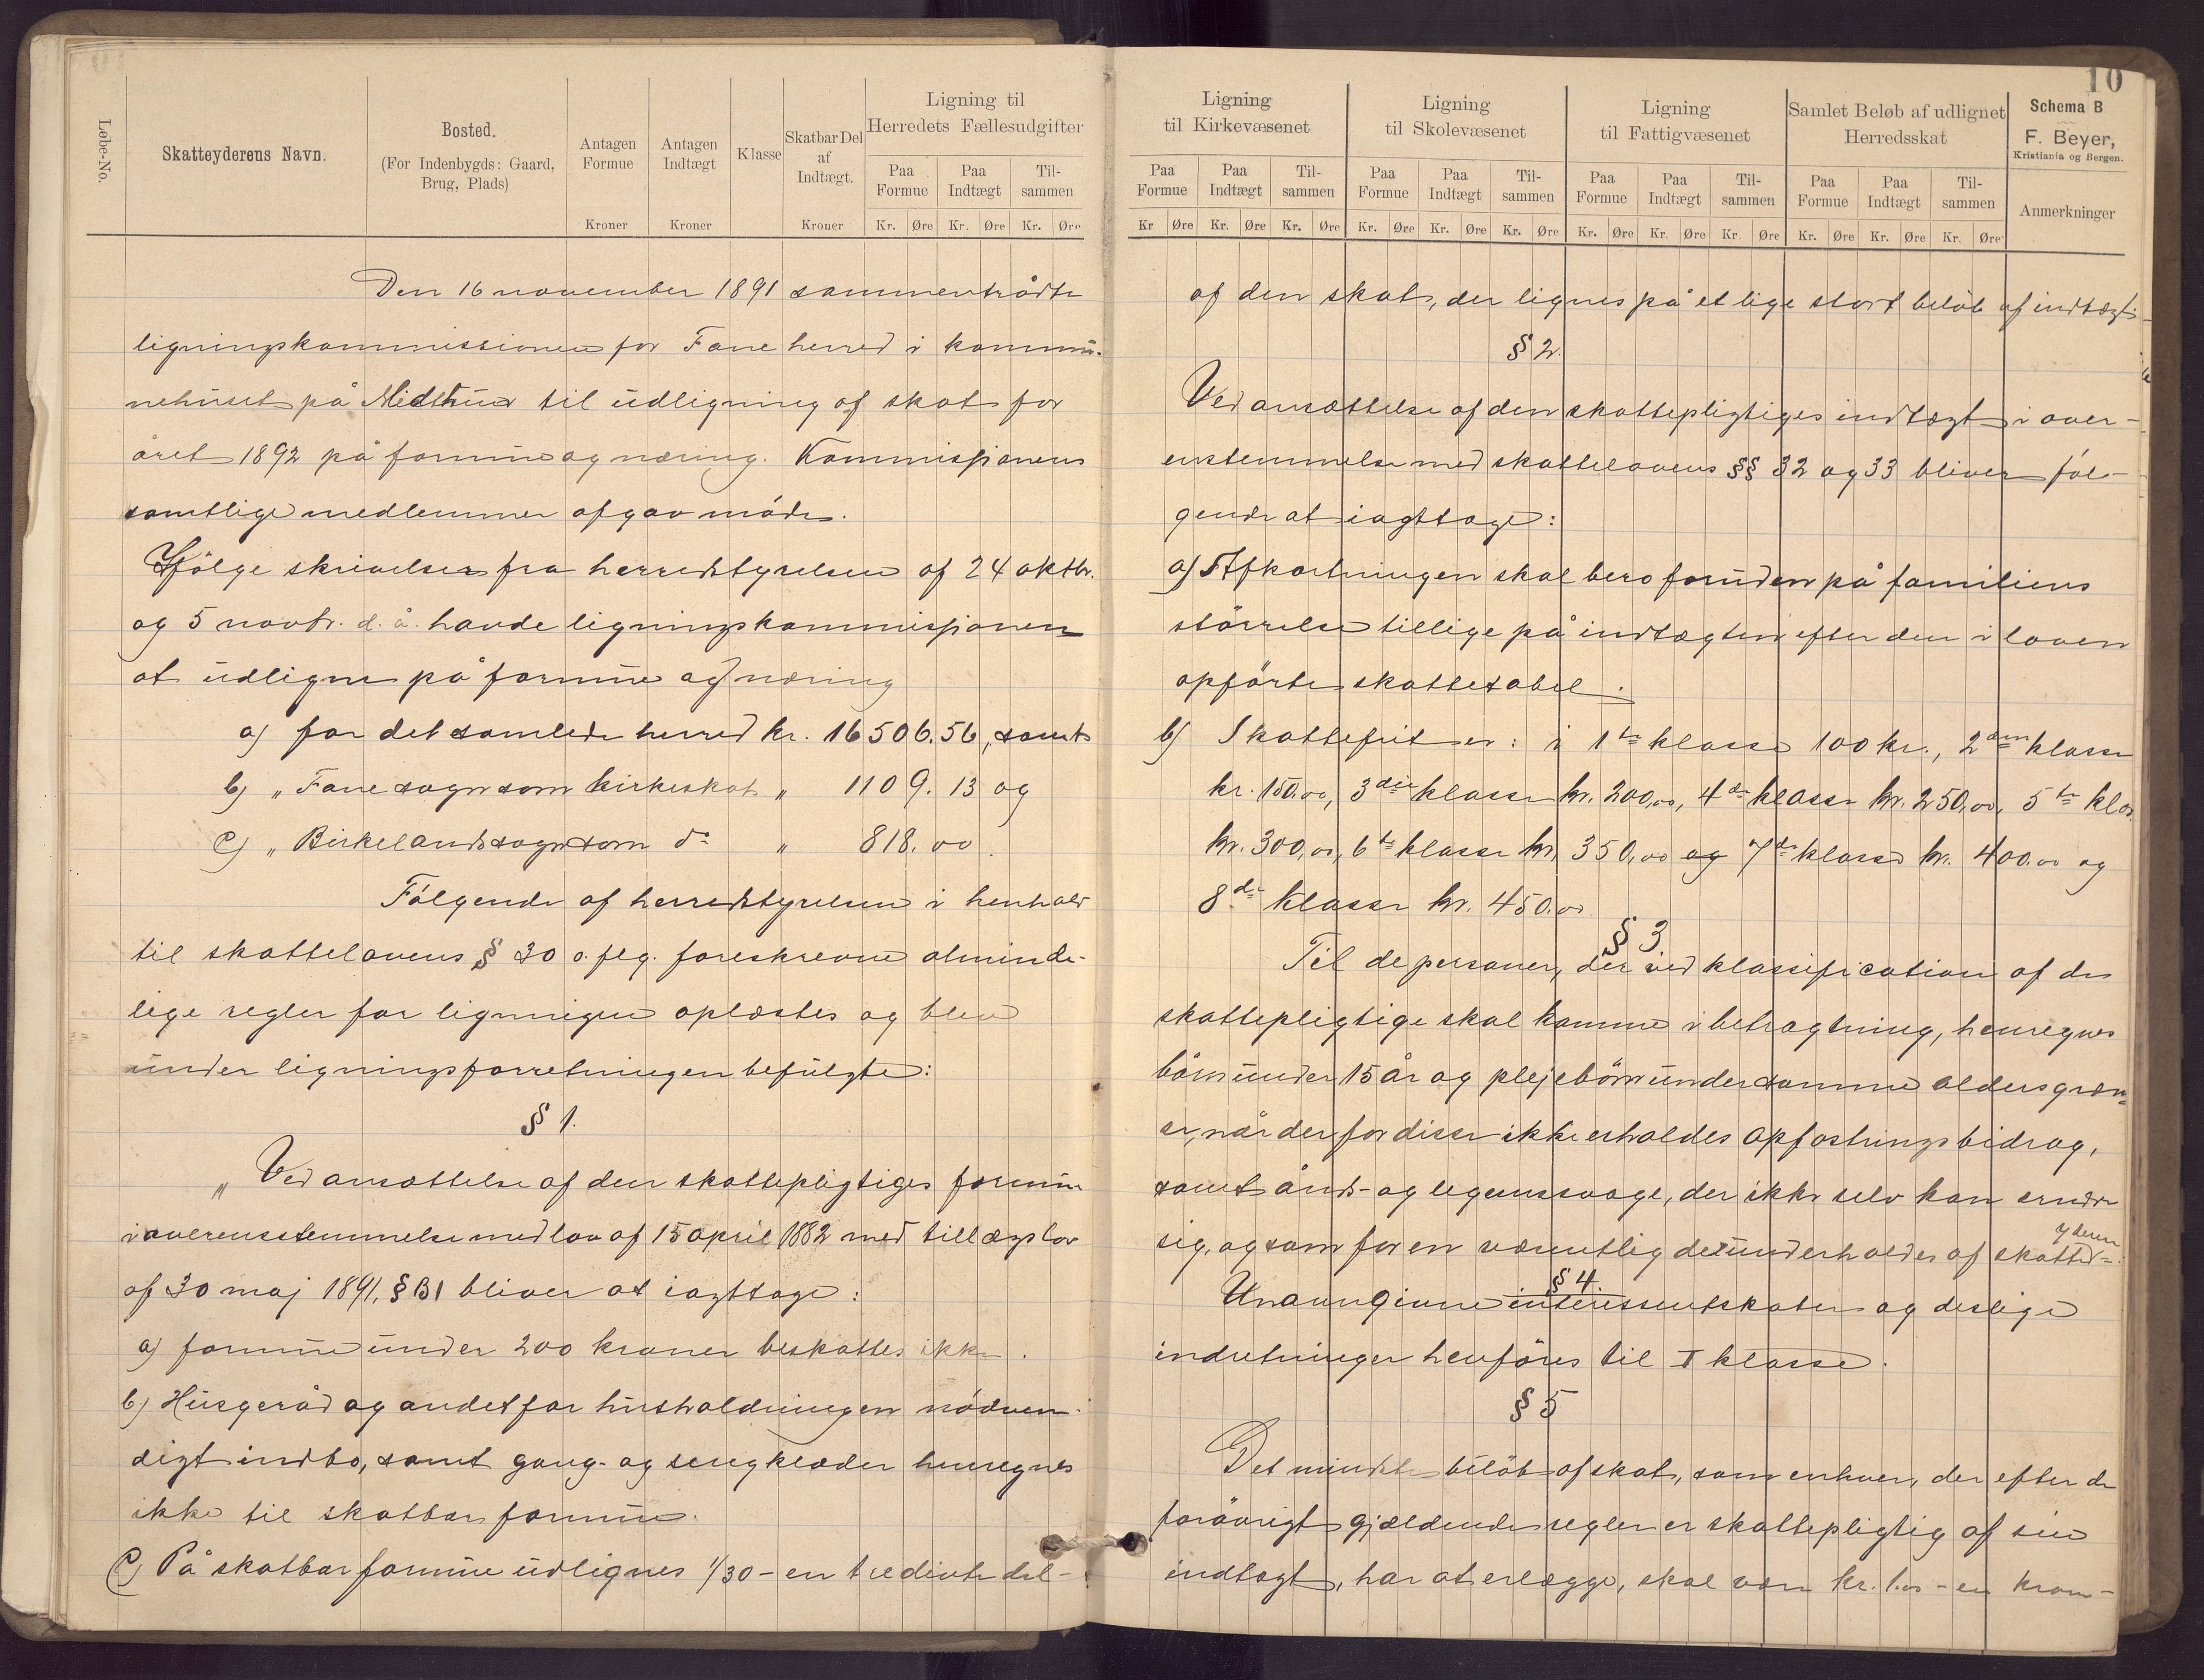 10
Løbe-No.
Skatteyderens Navn.
Bosted.
(For Indenbygds: Gaard,
Brug, Plads)
Antagen
Formue
Kroner
Antagen
Indtægt
Kroner
Klasse
Skatbar Del
af
Indtægt.
Kroner
Ligning til
Herredets Fællesudgifter
Paa Formue Paa Indtægt Til-sammen
Kr. Øre Kr. Øre Kr. Øre
Den 16 november 1891 sammentrådte
ligningskommissionen for Fane herred i kommu-
nehuset på Midttun til udligning af skat for
året 1892 på formue og næring. Kommissionens
samtlige medlemmer afgav møde.
Ifølge skrivelser fra herredstyrelsen af 24 oktbr.
og 5 novbr. d. å. havde ligningskommissionen
at udligne på formue og næring
a) for det samlede herred kr. 16506.56, samt
b) „ Fane sogn som kirkeskat „ 1109. 13 og
c) „ Birkelands sogn som do „ 818. 00.
Følgende af herredstyrelsen i henhold
til skattelovens § 30 o. flg. foreskrevne alminde-
lige regler for ligningen oplæstes og blev
under ligningsforretningen befulgte:
§ 1.
„ Ved ansættelse af den skattepligtiges formue
i overensstemmelse med lov af 15 april 1882 med tillægslov
af 30 maj 1891, § 31 bliver at iagttage:
a) formue under 200 kroner beskattes ikke.
b) Husgeråd og andet for husholdningen nødven-
digt indbo, samt gang- og sengklæder henregnes
ikke til skatbar formue.
c) På skatbar formue udlignes 1/30 - en tredivte del -
Ligning
til Kirkevæsenet
Paa Formue Paa Indtægt Til-sammen
Kr Øre Kr. Øre Kr. Øre
Ligning
til Skolevæsenet
Paa Formue Paa Indtægt Til-sammen
Kr. Øre Kr. Øre Kr. Øre
Ligning
til Fattigvæsenet
Paa Formue Paa Indtægt Til-sammen
Kr. Øre Kr. Øre Kr. Øre
Samlet Beløb af udlignet
Herredsskat
Paa Formue Paa Indtægt Til-sammen
Kr. Øre Kr. Øre Kr. Øre
Schema B
F. Beyer,
Kristiania og Bergen.
Anmerkninger
af den skat, der lignes på et lige stort beløb af indtægt
§ 2.
Ved ansættelse af den skattepligtiges indtægt i over-
enstemmelse med skattelovens §§ 32 og 33 bliver føl-
gende at iagttage:
a) Afkortningen skal bero foruden på familiens
størrelse tillige på indtægten efter den i loven
opførte skattetabel.
b) Skattefrit er: i 1ste klasse 100 kr., 2den klasse
kr. 150.00, 3die klasse kr. 200,00, 4de klasse kr. 250,00, 5te klas.
kr. 300,00, 6te klasse kr. 350,00 og 7de klasse kr. 400.00 og
8de klasse kr. 450.00
§ 3
Til de personer, der ved klassification af de
skattepligtige skal komme i betragtning, henregnes
børn under 15 år og plejebørn under samme aldersgræn-
se, når der for disse ikke erholdes opfostringsbidrag,
samt ånds- og legemssvage, der ikke selv kan ernære
sig, og som for en væsentlig del underholdes af skatte-
yderen
§ 4.
Unavngivne interessentskaber og deslige
indretninger henføres til I klasse.
§ 5
Det mindste beløb af skat, som enhver, der efter de
forøvrigt gjældende regler er skattepligtig af sin
indtægt, har at erlægge, skal være kr. 1.00 - en krone -